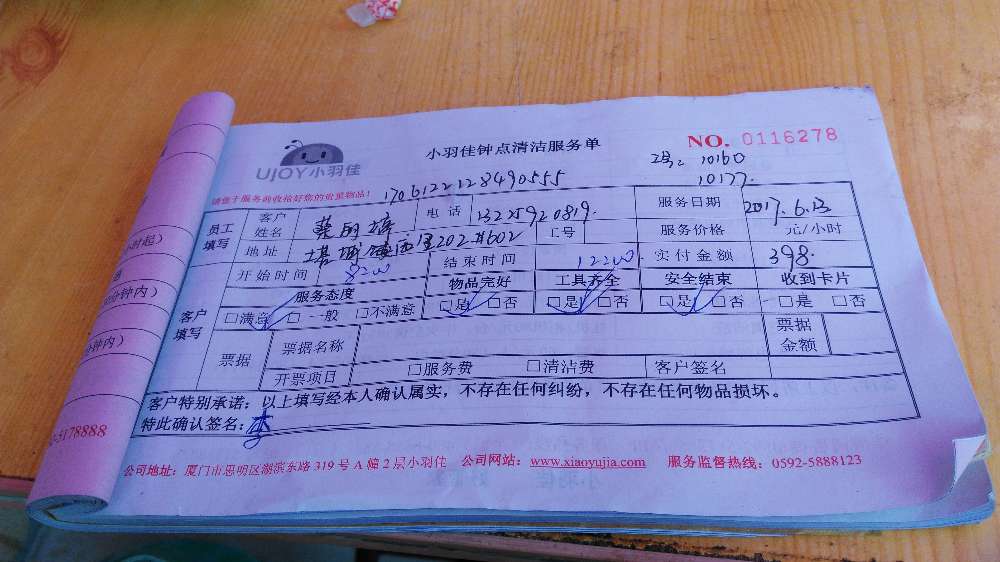 UJOY小羽佳
小羽佳钟点清洁服务单
NO. 0116278
10160
10177.
请您于服务前收拾好您的贵重物品！
170612212849055
员工填写 客户姓名 电话 服务日期 2017.6.13
地址 202#602 工号 服务价格 元/小时
开始时间 结束时间 实付金额 398.
客户填写 服务态度 物品完好 工具齐全 安全结束 收到卡片
□满意 □一般 □不满意 □是 □否 □是 □否 □是 □否 □是 □否
票据 票据名称 票据金额
开票项目 □服务费 □清洁费 客户签名
客户特别承诺：以上填写经本人确认属实，不存在任何纠纷，不存在任何物品损坏。
特此确认签名：李
公司地址：厦门市思明区湖滨东路 319 号 A 幢 2 层小羽佳 公司网站：www.xiaoyujia.com 服务监督热线：0592-5888123
5178888